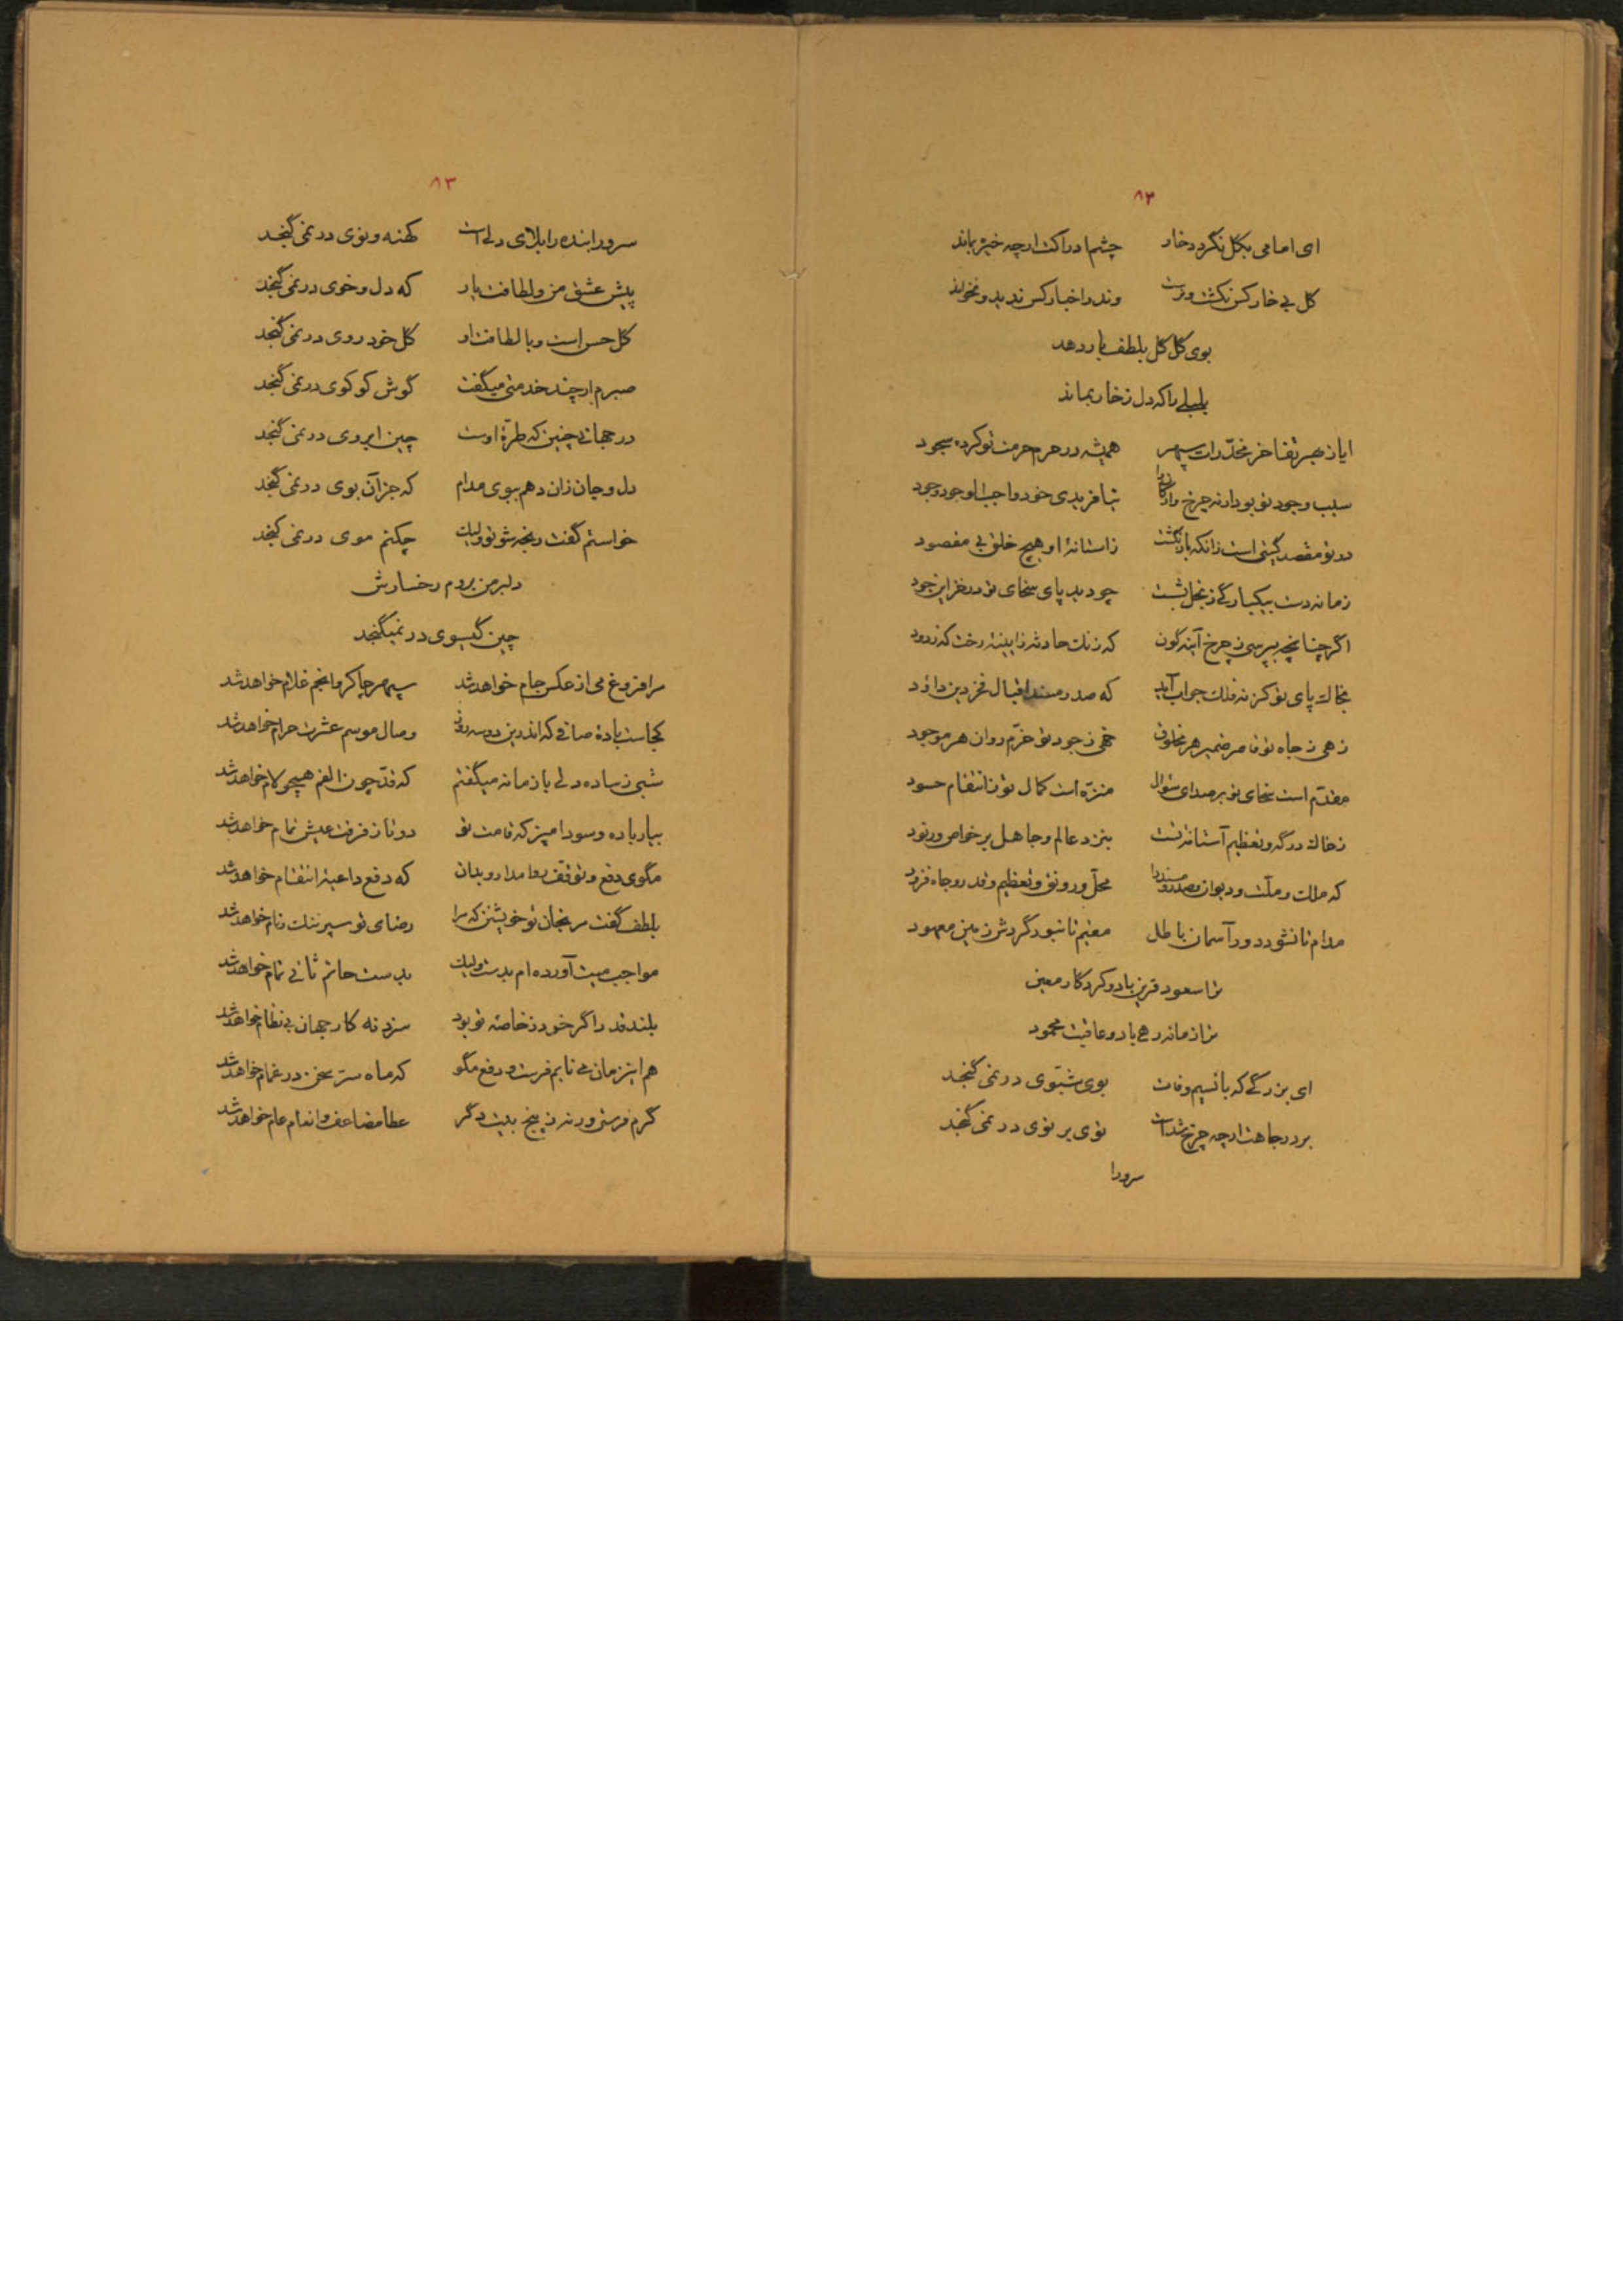 ۸۲
ای امامی بکل نگر در خار چشم ادراکت ارچه خیره بماند
کل بی خار کس نکشت و نرست وندر اخبار کس ندید و نخواند
بوی کل کل بلطف باز دهد
بلبلی را که دل ز خار بماند
ایا ز بهر تفاخر مخدّرات سپهر همیشه در حرم حرمت تو کرده سجود
سبب وجود تو بود ارنه چرخ و ارکانرا نیافریدی خود واجب الوجود وجود
در تو مقصد کیتی است زانکه باز نکشت ز آستانهٔ او هیچ خلق بی مقصود
زمانه دست بیکبارگی ز بخل بشست چو دید پای سخای تو در خزاین جود
اگر چنانچه بپرسی ز چرخ آینه کون که زنک حادثه ز ایینهٔ رخت که زدود
بخاک پای تو کز نه فلک جواب آید که صدر مسند اقبال فخر دین داؤد
زهی ز جاه تو قاصر ضمیر هر مخلوق خهی ز جود تو خرّم روان هر موجود
مقدّم است سخای تو بر صدای سؤال منزّه است کمال تو ز انتقام حسود
ز خاک درگه و تعظیم آستانهٔ تست بنزد عالم و جاهل بر خواص و رنود
که ملک و ملّت و دیوان و صدر و مسند را محلّ و رونق و تعظیم و قدر و جاه فزود
مدام تا نشود دور آسمان باطل مقیم تا نبود گردش زمین معهود
ترا سعود قرین باد و کردکار معین
ترا زمانه رهی باد و عاقبت محمود
ای بزرگی که با نسیم وفات بوی شبّوی در نمی گنجد
بر در جاهت ارچه چرخ شد است نوی بر نوی در نمی گنجد
سرورا
۸۳
سرورا بنده را بلای دلی است کهنه و نوی در نمی گنجد
پیش عشق من و لطافت یار که دل و خوی در نمی گنجد
کل حسن است و با لطافت او کل خود روی در نمی گنجد
صبرم ار چند خدمتی میگفت گوش کو کوی در نمی گنجد
در جهانی چنین که طرّهٔ اوست چین ابروی در نمی گنجد
دل و جان زان دهم ببوی مدام که جز آن بوی در نمی گنجد
خواستم گفت رنجه شو تو ولیک چکنم موی در نمی گنجد
دلبر من بروم رخسارش
چین گیسوی در نمیگنجد
مرا فروغ می از عکس جام خواهد شد سپهر چاکر و انجم غلام خواهد شد
کجاست بادهٔ صافی که اندرین دوسه روز وصال موسم عشرت حرام خواهد شد
شبی ز ساده دلی با زمانه میگفتم که قدّ چون الفم هیچو لام خواهد شد
بیار باده و سودا مپز که قامت تو دوتا ز فرقت عیش تمام خواهد شد
مگوی دفع و توقف روا مدار و بدان که دفع داعیهٔ انتقام خواهد شد
بلطف گفت مرنجان تو خویشتن که مرا رضای تو سپر ننک و نام خواهد شد
مواجب میت آورده ام بدست ولیک بدست حاتم ثانی تمام خواهد شد
بلند قدرا گر خود ز خاصهٔ تو بود سزد نه کار جهان بی نظام خواهد شد
هم این زمان می نابم فرست و دفع مگو که ماه ستر سخن در غمام خواهد شد
گرم فرستی ورنه ز پنج بیت دگر عطا مضاعف و انعام عام خواهد شد